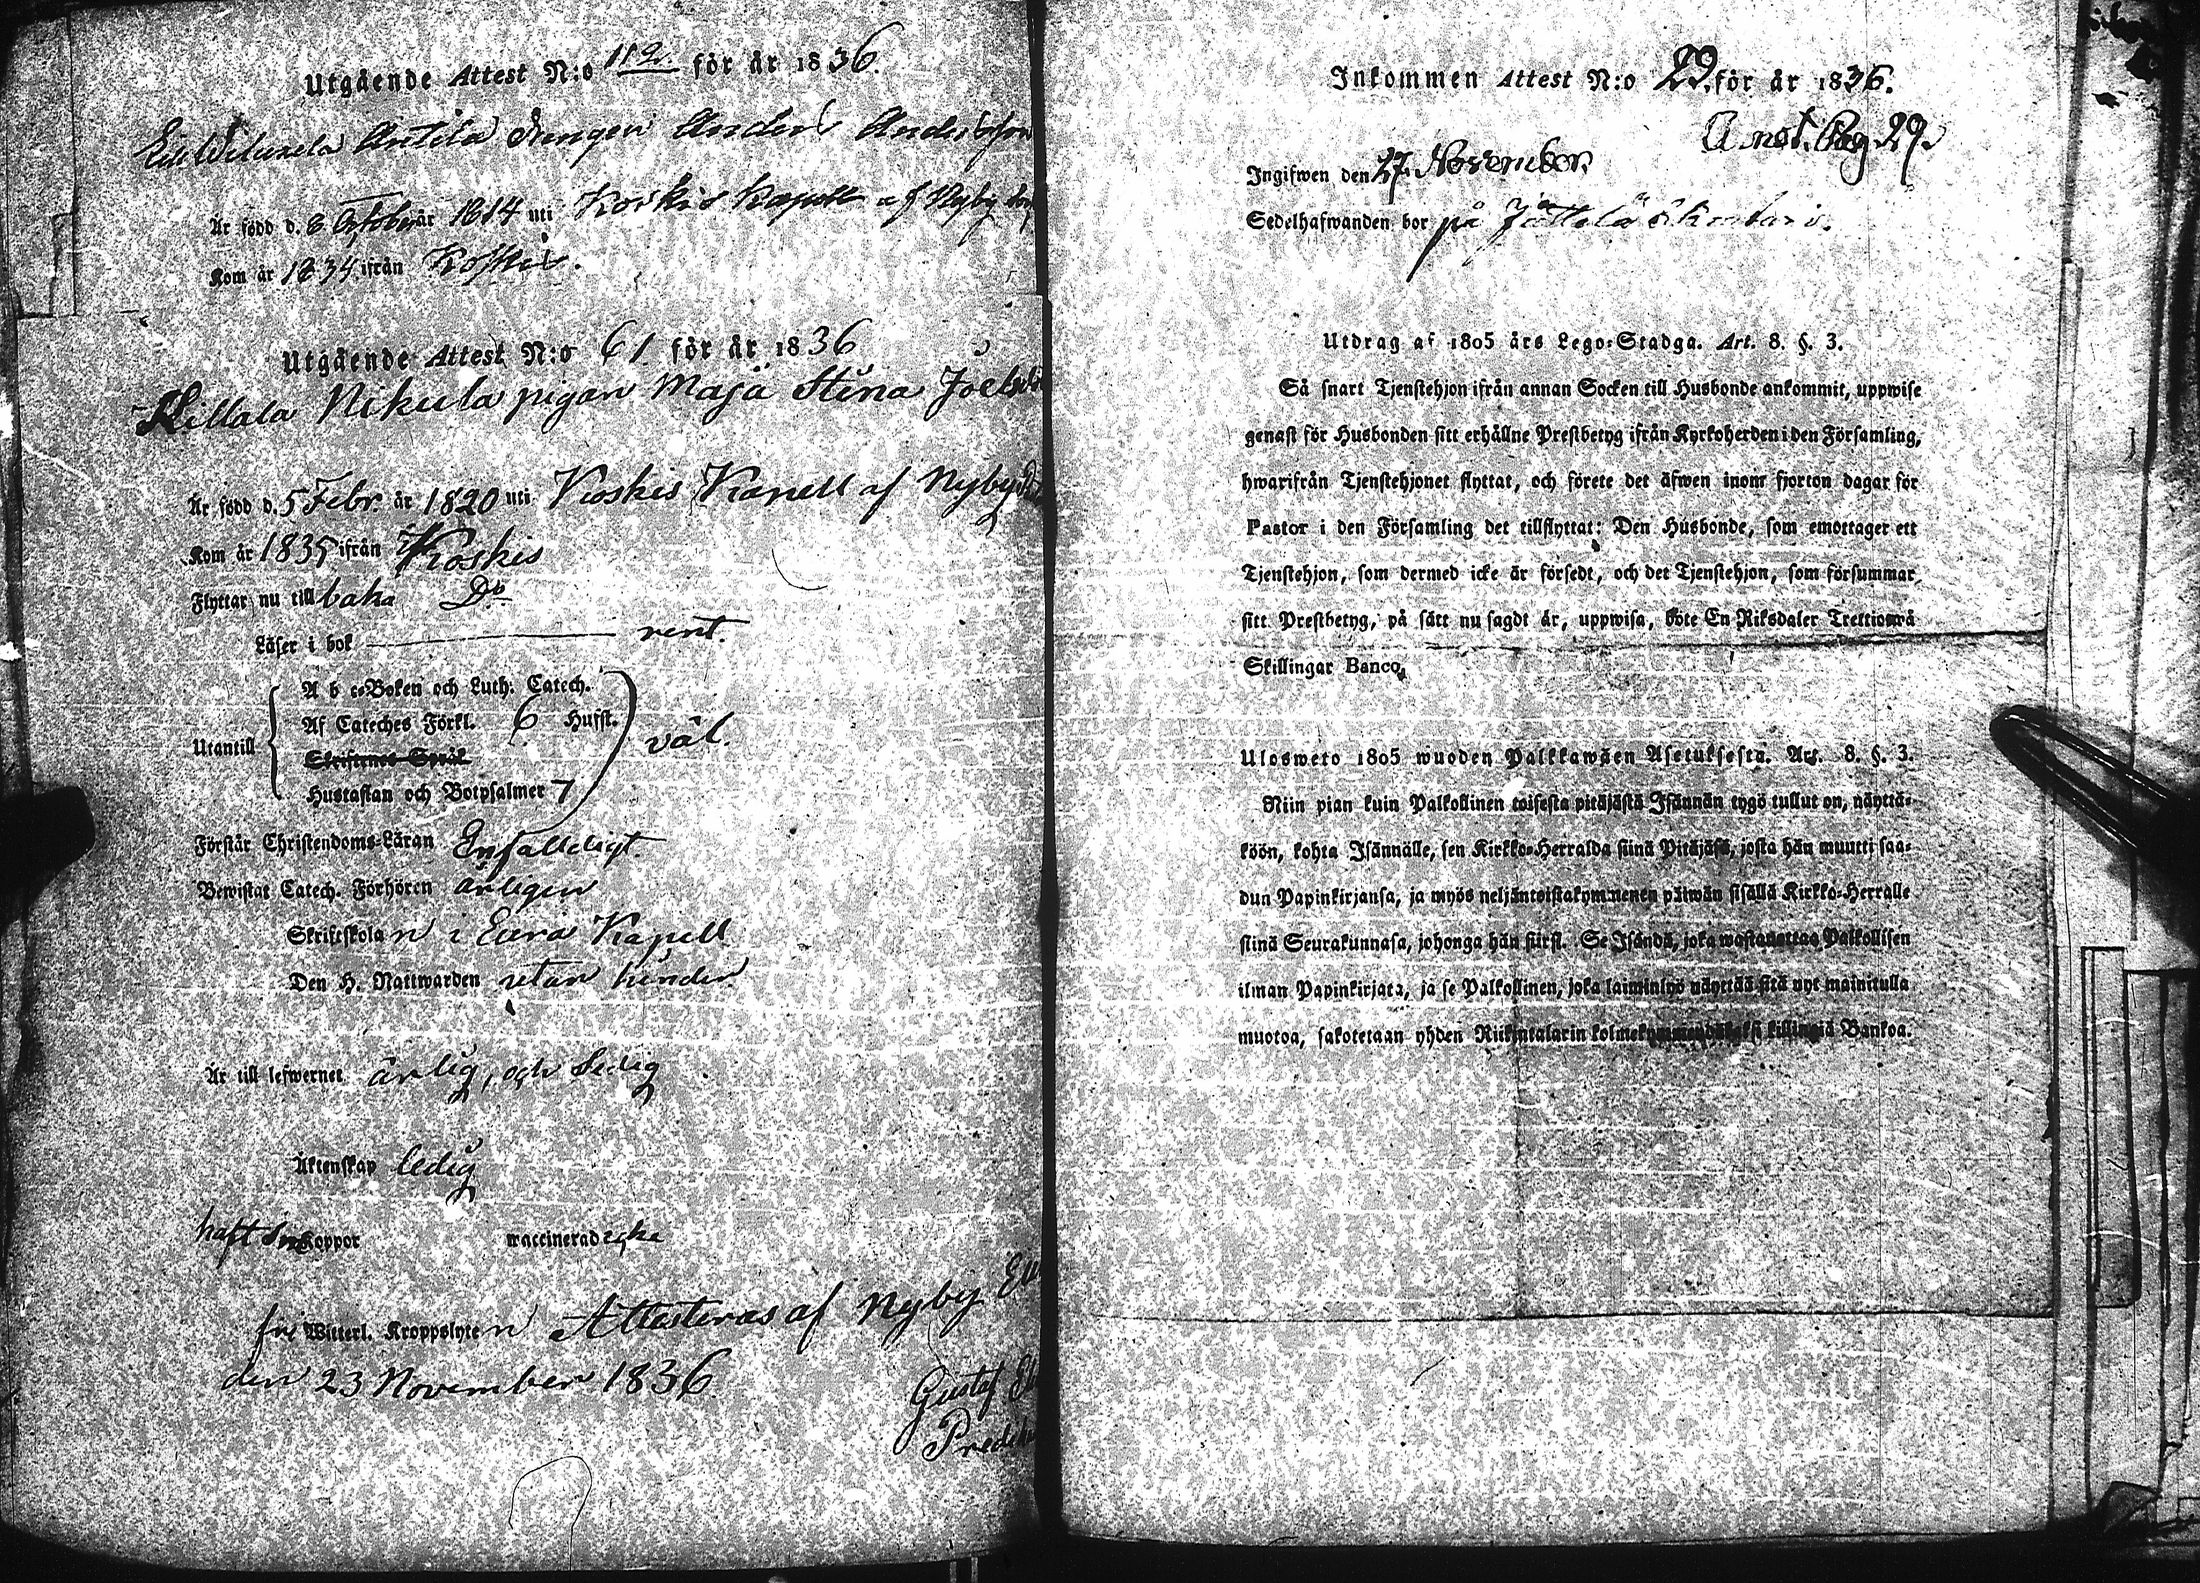 Utgående Attest N:o 112. för år 1836.
Antila Drengen Anders
Är född d. 8 October år 1814 uti Koskis Kapell af Nyby
Kom år 1834 ifrån Koskis.
Utgående Attest N:o 61 för år 1836
Killala Nikula pigan Maja Stina
Är född d. 5 Febr. år 1820 uti Koskis Kapell af Nyby
Kom år 1835 ifrån Koskis
Flyttar nu tillbaka Do
Läser i bok rent.
Utantill
A b c=Boken och Luth. Catech.
Af Cateches Förkl. 6 Hufst.
Skriftenes Språk
Hustaflan och Botpsalmer 7
väl.
Förstår Christendoms=Läran Enfalldeligt.
Bewistat Catech. Förhören årligen
Skriftskolan i Eura Kapell
Den H. Nattwarden utan hinder
Är till lefwernet ärlig, och Sedig
Äktenskap ledig
haft Små Koppor waccinerad icke
fri Witterl. Kroppslyten Attesteras af Nyby
den 23 November 1836.
Gustaf
Inkommen Attest N:o 29. för år 1836.
Ingifwen den 27 November.
Sedelhafwanden bor på
Utdrag af 1805 års Lego=Stadga. Art. 8. §. 3.
Så snart Tjenstehjon ifrån annan Socken till Husbonde ankommit, uppwise
genast för Husbonden sitt erhållne Prestbetyg ifrån Kyrkoherden i den Församling,
hwarifrån Tjenstehjonet flyttat, och förete det äfwen inom fjorton dagar för
Pastor i den Församling det tillflyttat: Den Husbonde, som emottager ett
Tjenstehjon, som dermed icke är försedt, och det Tjenstehjon, som försummar
sitt Prestbetyg, på sätt nu sagdt är, uppwisa, böte En Riksdaler Trettiotwå
Skillingar Banco.
Ulosweto 1805 wuoden Palkkawäen Asetuksesta. Art. 8. §. 3.
Niin pian kuin Palkollinen toisesta pitäjästä Isännän tygö tullut on, näyttä=
köön, kohta Isännälle, sen Kirkko=Herralda siinä Pitäjäsä, josta hän muutti saa=
dun Papinkirjansa, ja myös neljäntoistakymmenen päiwän sisällä Kirkko=Herralle
siinä Seurakunnasa, johonga hän siirsi. Se Isändä, joka wastanottaa Palkollisen
ilman Papinkirjata, ja se Palkollinen, joka laiminlyö näyttää sitä nyt mainitulla
muotoa, sakotetaan yhden Riikintalarin killingiä Bankoa.